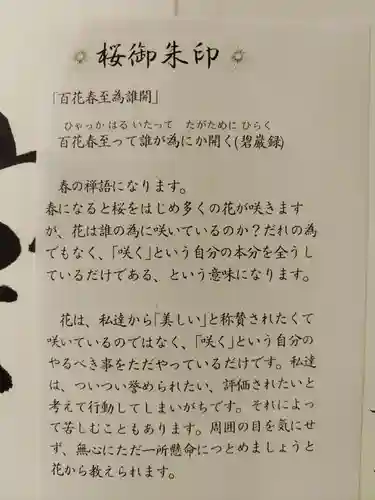 桜御朱印
「百花春至為誰開」
ひゃっか はる いたって たがために ひらく
百花春至って誰が為にか開く(碧巌録)
春の禅語になります。
春になると桜をはじめ多くの花が咲きます
が、花は誰の為に咲いているのか?だれの為
でもなく、「咲く」という自分の本分を全うし
ているだけである、という意味になります。
花は、私達から「美しい」と称賛されたくて
咲いているのではなく、「咲く」という自分の
やるべき事をただやっているだけです。私達
は、ついつい誉められたい、評価されたいと
考えて行動してしまいがちです。それによっ
て苦しむこともあります。周囲の目を気にせ
ず、無心にただ一所懸命につとめましょうと
花から教えられます。